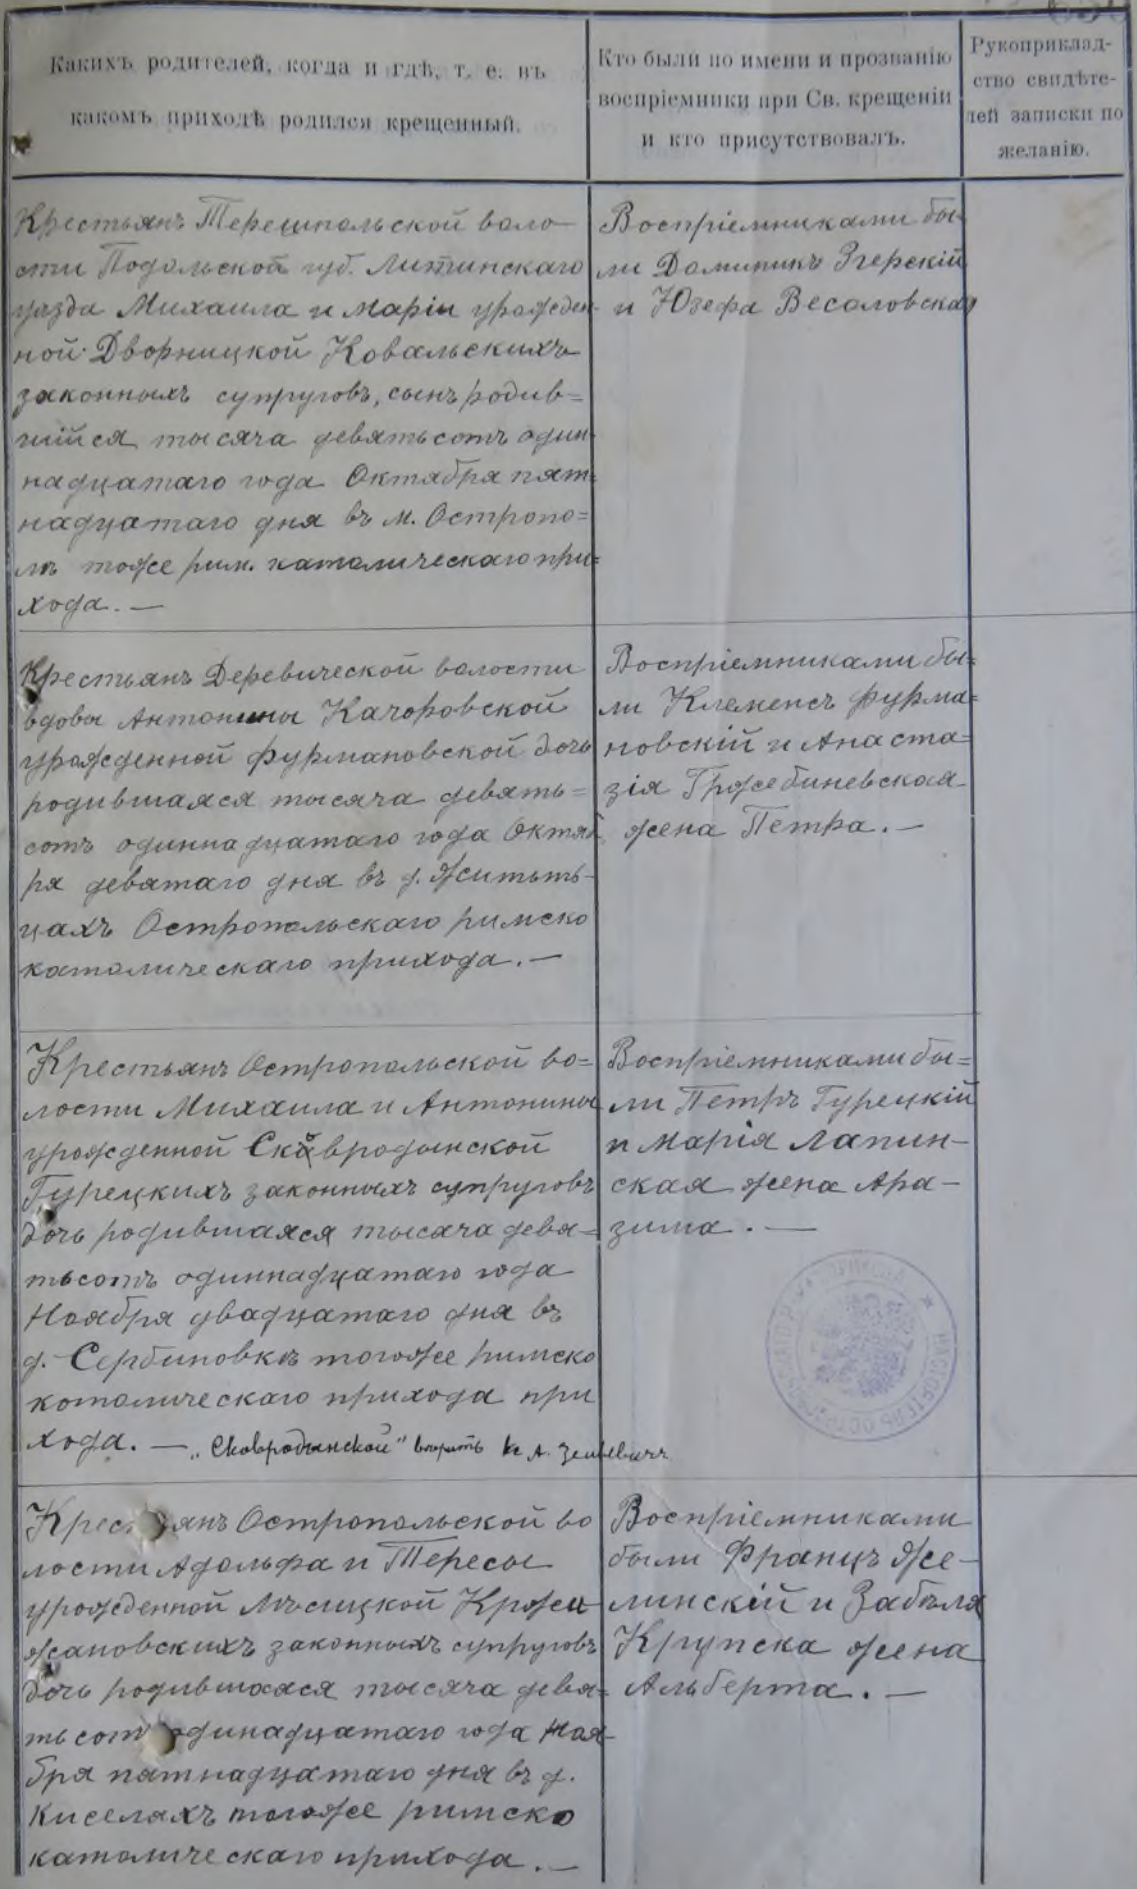 Какихъ родителей, когда и гдѣ, т. е. въ
какомъ приходѣ родился крещенный.
Кто были по имени и прозванію
воспріемники при Св. крещеніи
и кто присутствовалъ.
Рукоприклад-
ство свидѣте-
лей записки по
желанію.
Крестьянъ Терешпольской воло-
сти Подольской губ. Литинскаго
уѣзда Михаила и Маріи урожден-
ной Дворницкой Ковальскихъ
законныхъ супруговъ, сынъ родив=
шійся тысяча девятьсотъ один-
надцатаго года Октября пят=
надцатаго дня въ м. Острополѣ
тоже рим. католическаго при=
хода. —
Воспріемниками бы-
ли Доминикъ Згерскій
и Юзефа Весоловская
Крестьянъ Деревической волости
вдовы Антонины Качоровской
урожденной Фурмановской дочь
родившаяся тысяча девять=
сотъ одиннадцатаго года Октяб
ря девятаго дня въ д.
цахъ Остропольскаго римско
католическаго прихода. —
Воспріемниками бы=
ли Клеменсъ Фурма=
новскій и Анаста=
зія Гржебиневская
жена Петра. —
Крестьянъ Остропольской во=
лости Михаила и Антонины
урожденной Сковродынской
Гурецкихъ законныхъ супруговъ
дочь родившаяся тысяча девя=
тьсотъ одиннадцатаго года
Ноября двадцатаго дня въ
д. Сербиновкѣ тогоже римско
котолическаго прихода при
хода. — „Сковродынской" вѣрить Кс А.
Воспріемниками бы=
ли Петръ Гурецкій
и Марія Лапин-
ская жена Ара-
зима. —
Крестьянъ Остропольской во
лости Адольфа и Тересы
урожденной Мѣсицкой Кржи
жановскихъ законныхъ супруговъ
дочь родившаяся тысяча девя=
тьсотъ одинадцатаго года Ноя-
бря пятнадцатаго дня въ д.
Киселяхъ тогоже римско
католическаго прихода. —
Воспріемниками
были Францъ Же-
линскій и Забѣля
Крупска жена
Альберта. —